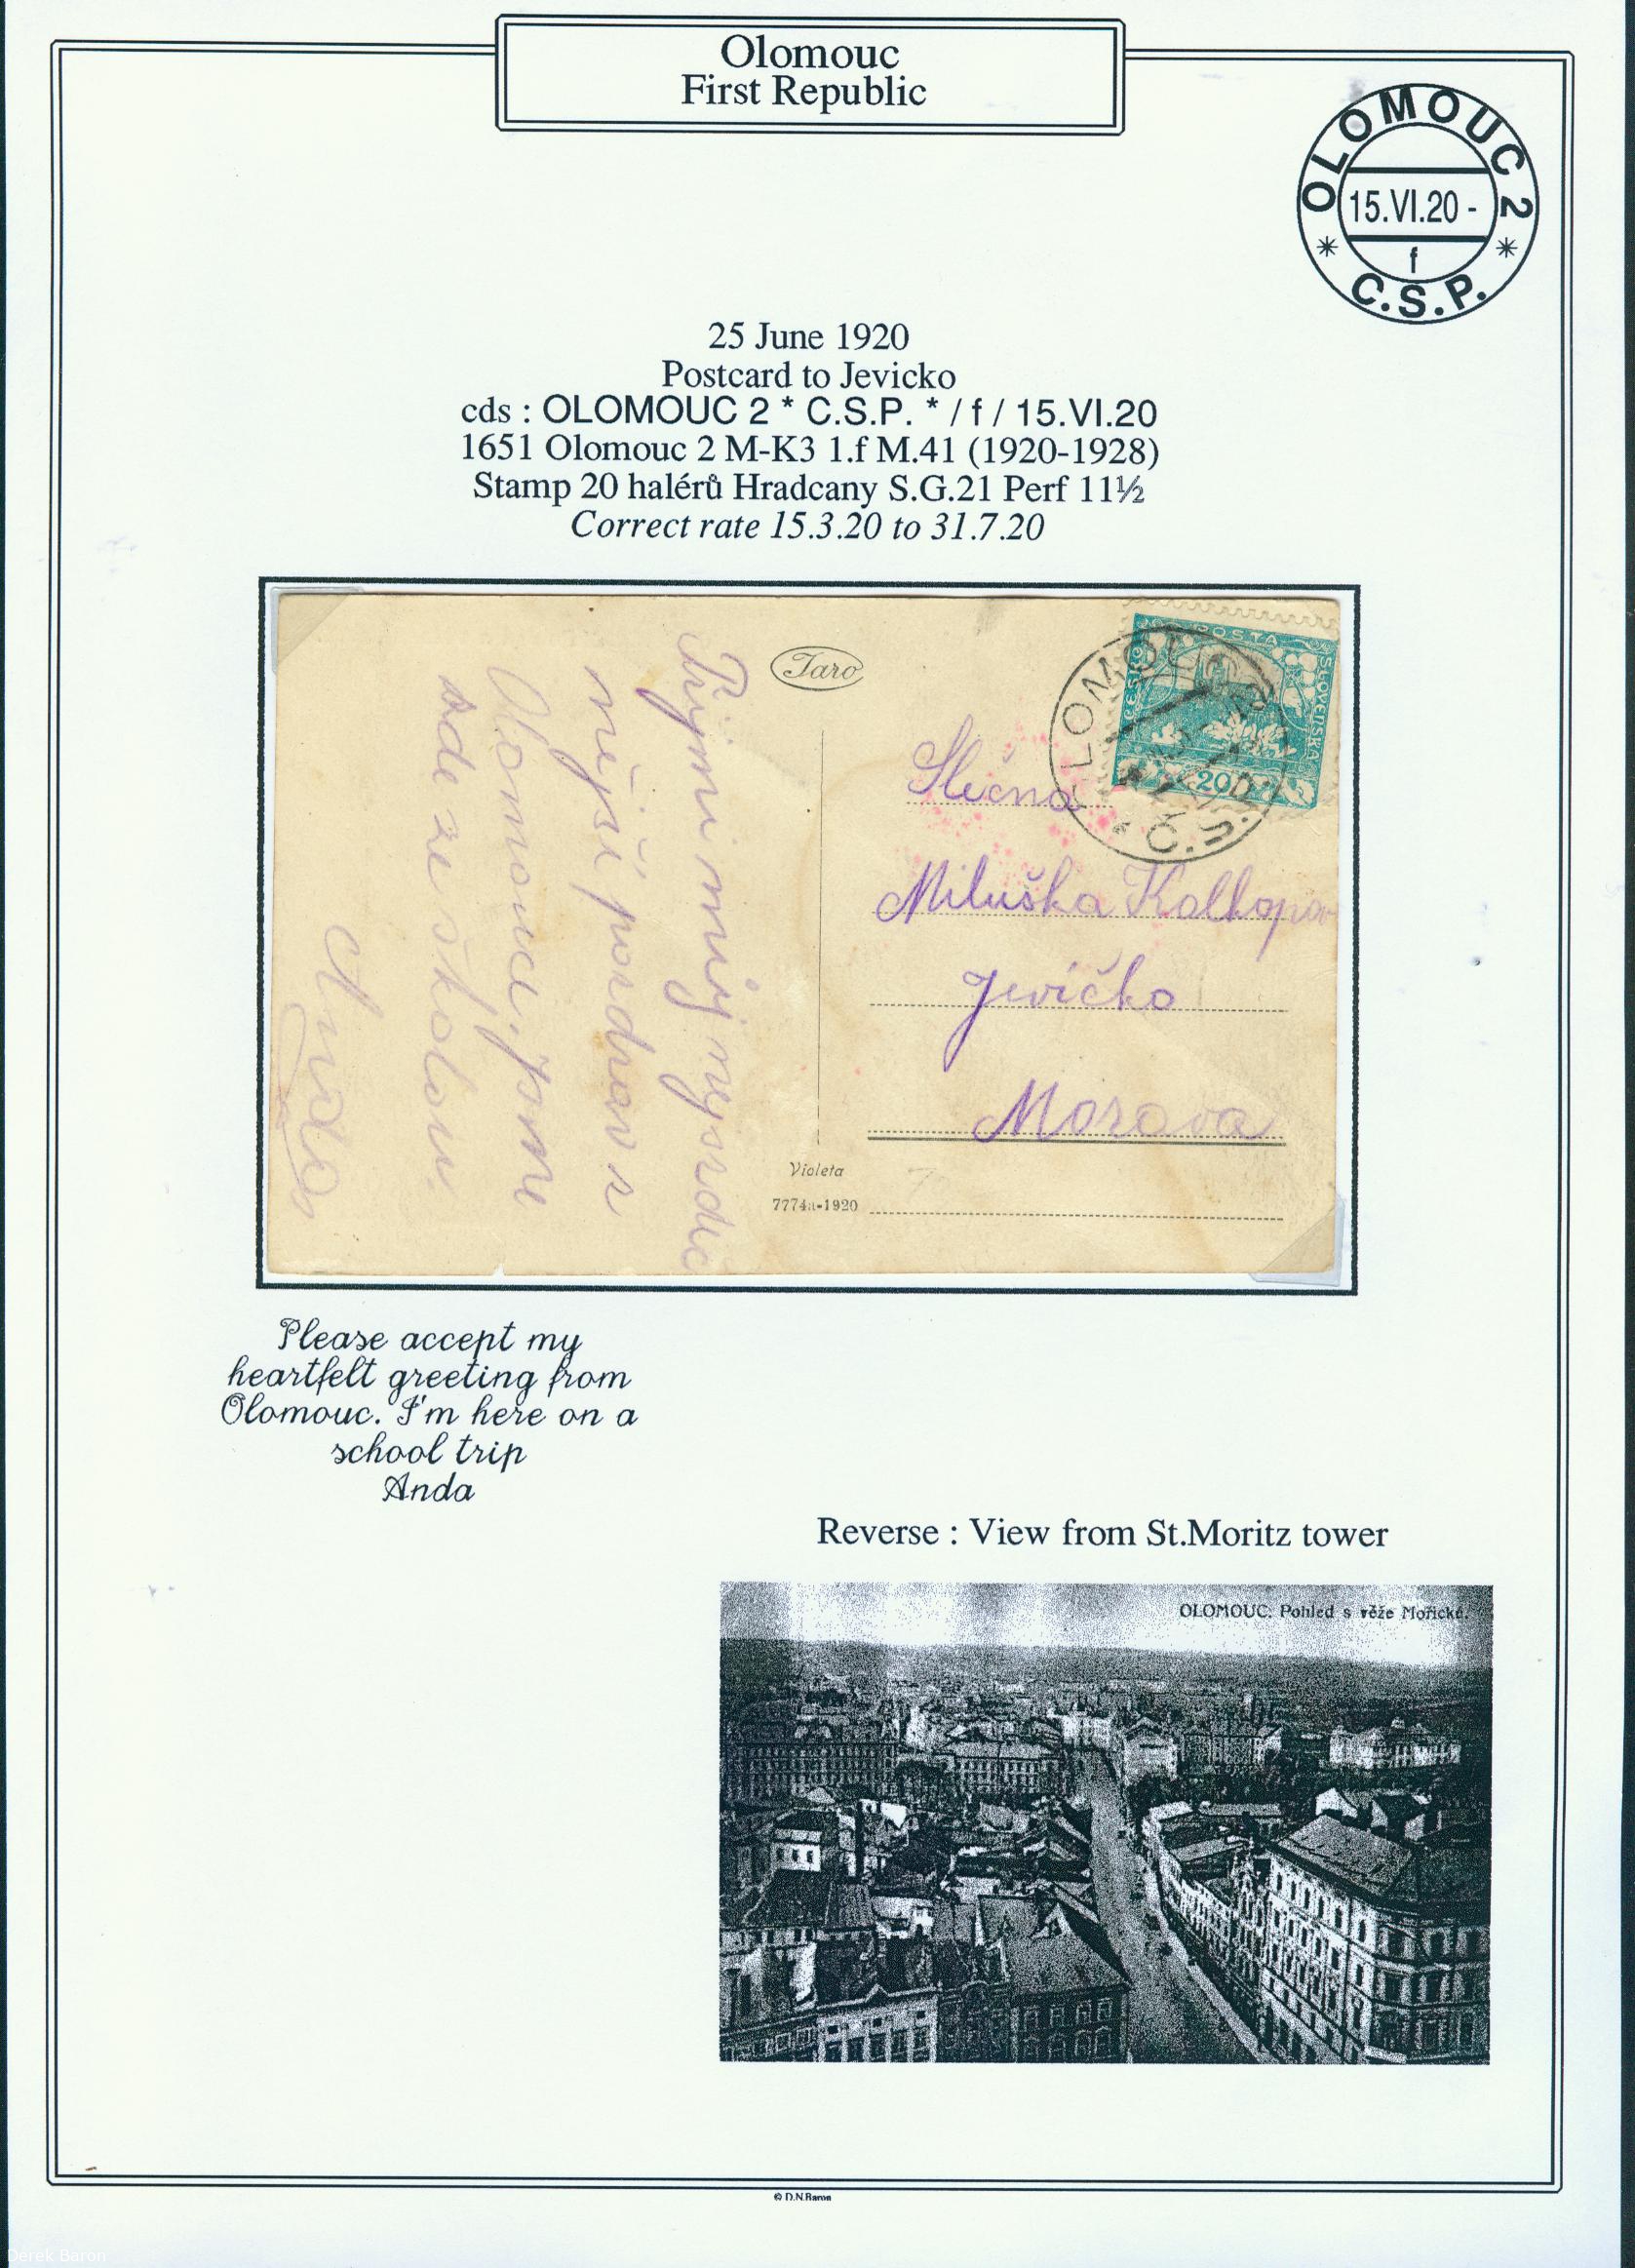 Olomouc
First Republic
OLOMOUC 2
15.VI.20 -
f
* C.S.P. *
25 June 1920
Postcard to Jevicko
cds : OLOMOUC 2 * C.S.P. * / f / 15.VI.20
1651 Olomouc 2 M-K3 1.f M.41 (1920-1928)
Stamp 20 halérů Hradcany S.G.21 Perf 11½
Correct rate 15.3.20 to 31.7.20
Taro
POSTA
ČESKO
SLOVENSKÁ
20
OLOMOUC
Č.S.P.
Přijmi můj nejsrdeč
nější pozdrav z
Olomouce, jsme
zde ze školou.
Anda
Slečna
Miluška
Jevíčko
Morava
Violeta
7774a-1920
Please accept my
heartfelt greeting from
Olomouc. I'm here on a
school trip
Anda
Reverse : View from St.Moritz tower
OLOMOUC: Pohled s věže Mořické.
© D.N.Baron
Derek Baron